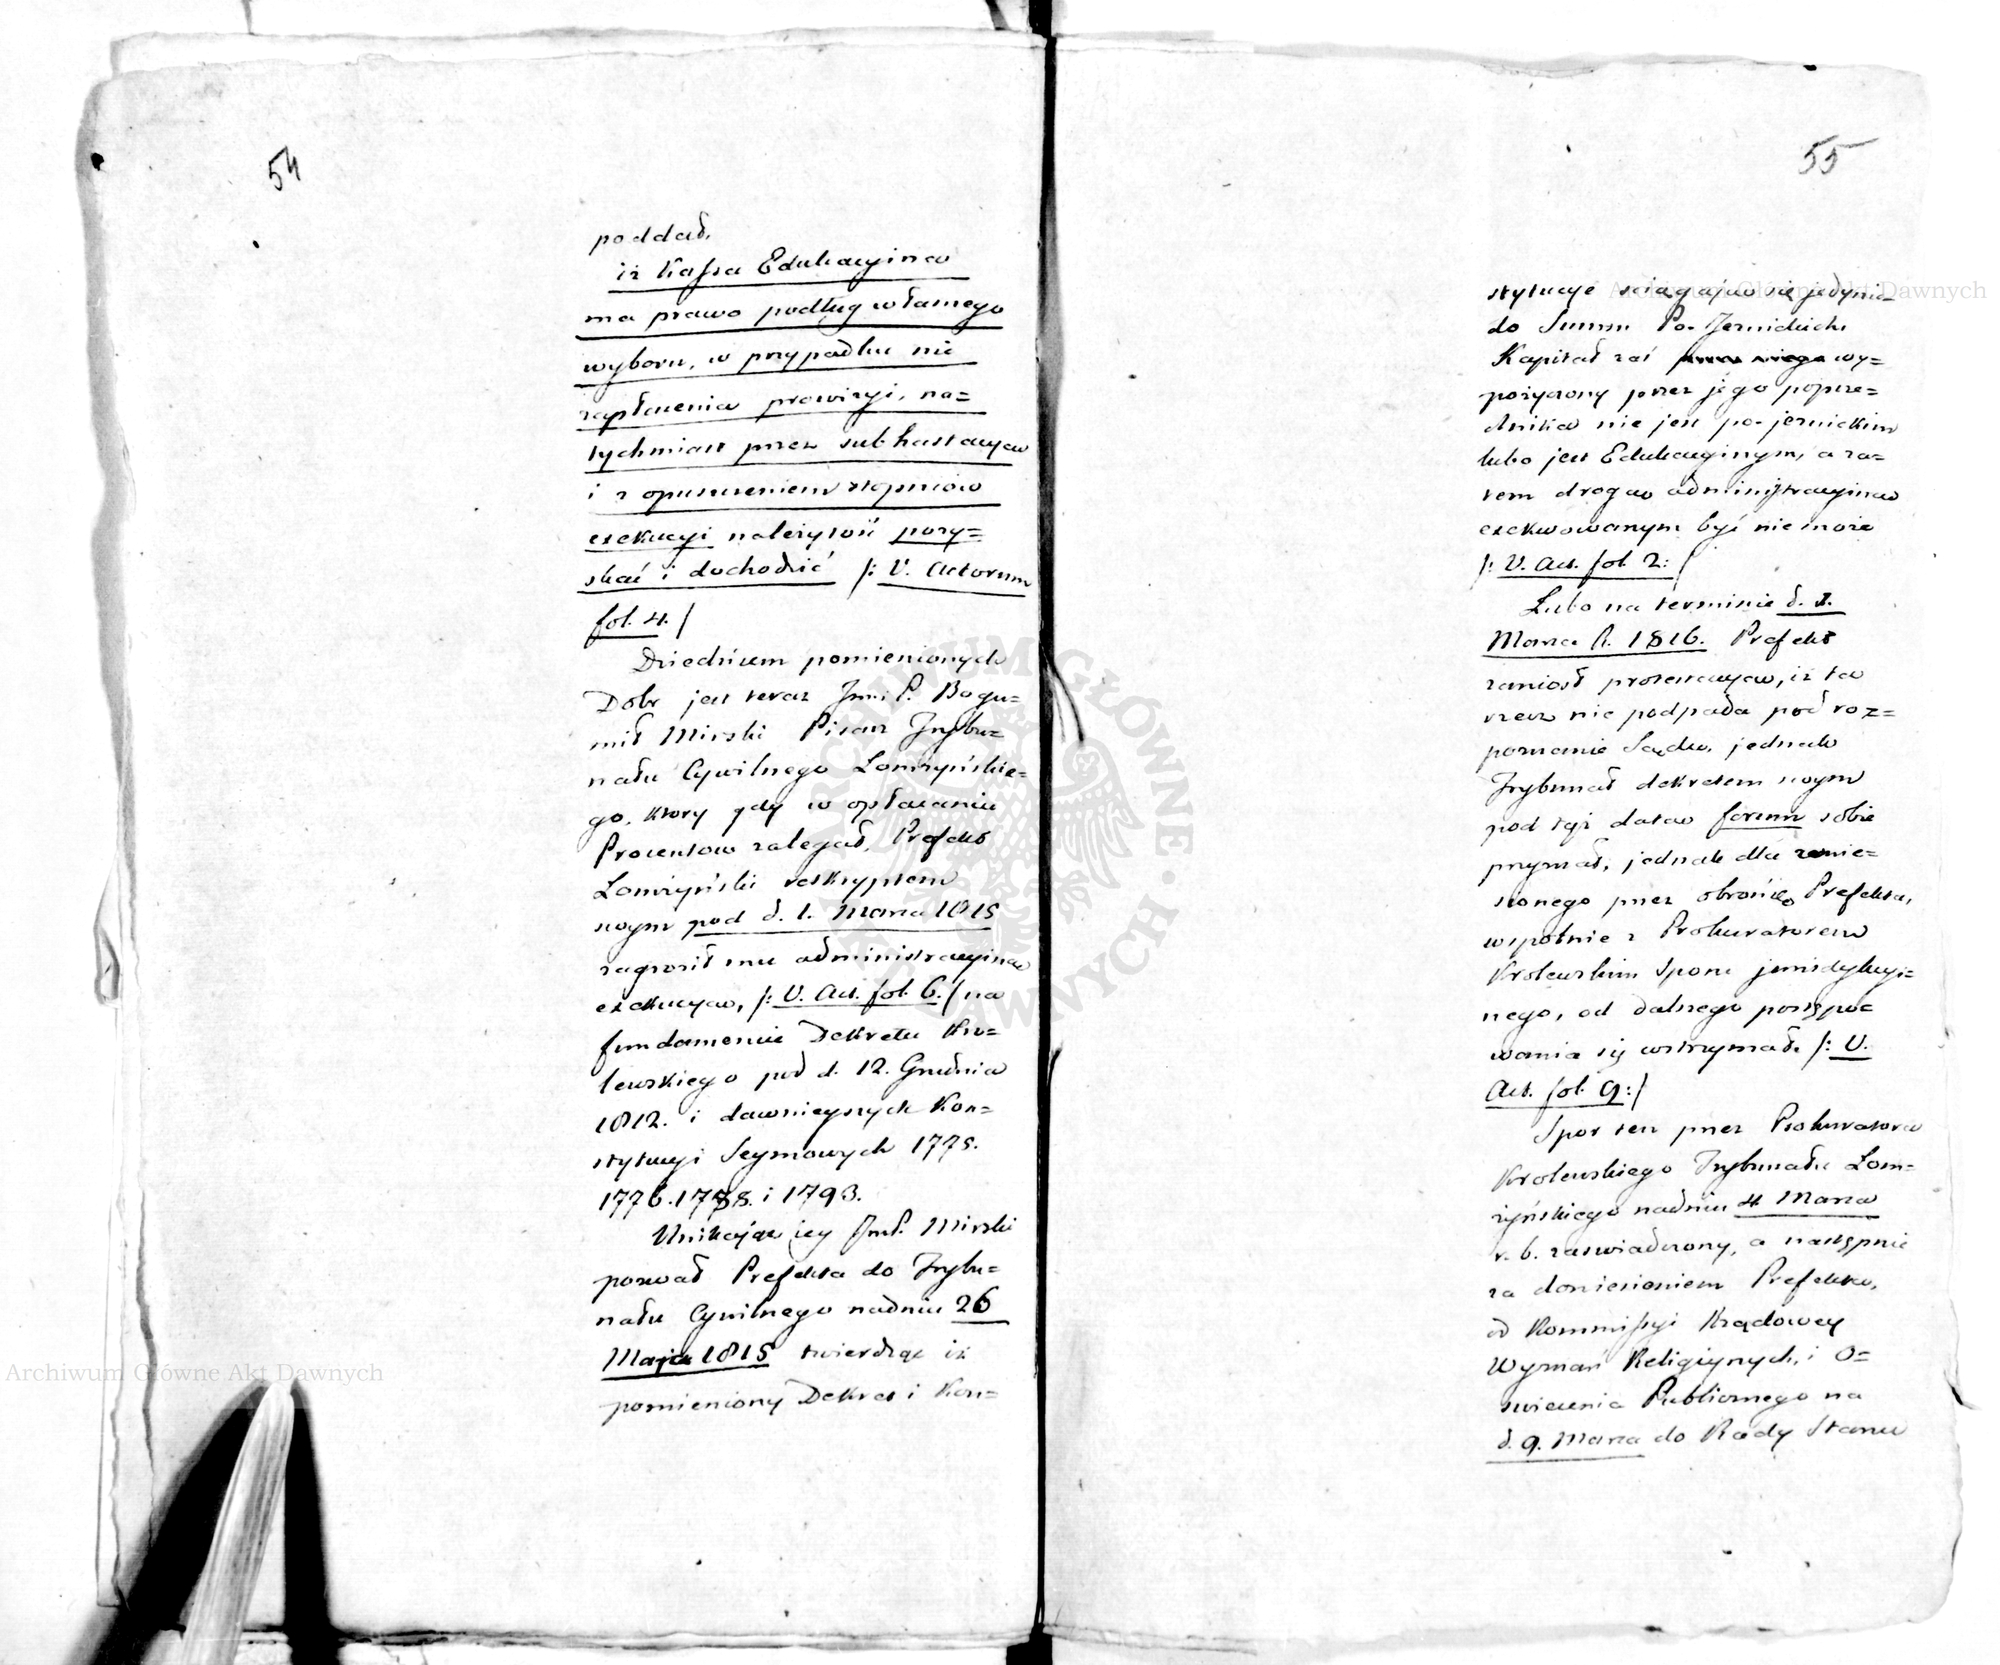 54
poddał.
iż Kassa Edukacyina
ma prawo podług własnego
wyboru, w przypadku nie
zapłacenia prowizyi, na=
tychmiast przez subhastacyą
i z opuszczeniem stopniów
exekucyi należytość pozy=
skać i dochodzić /: V. Actorum
fol. 4. /
Dziedzicem pomienionych
Dobr jest teraz Jmć P. Bogu=
mił Mirski Pisarz Trybu=
nału Cywilnego Łomżyńskie=
go, ktory gdy w opłacaniu
Procentow zalegał, Prefekt
Łomżyński reskryptem
swym pod d. 1. Marca 1815
zagroził mu administracyiną
exekucyą, /: V. Act. fol. 6. / na
fundamencie Dekretu Kro=
lewskiego pod d. 12. Grudnia
1812. i dawnieyszych Kon=
stytucyi Seymowych 1775.
1776. 1778. i 1793.
Unikaiąc iey JmP. Mirski
pozwał Prefekta do Trybu=
nału Cywilnego na dniu 26
Maja 1815 twierdząc iż
pomieniony Dekret i Kon=
55
stytucye sciągaią się jedynie
do Summ Po-Jezuickich
Kapitał zaś wy=
pożyczony przez jego poprze=
dnika nie jest po-jezuickim
lubo jest Edukacyinym, a za=
tem drogą administracyiną
exekwowanym być nie może
/: V. Act. fol. 2: /
Lubo na terminie d. 1.
Marca R. 1816. Prefekt
zaniosł protestacyą, iż ta
rzecz nie podpada pod roz=
poznanie Sądu, jednak
Trybunał dekretem swym
pod tąż datą forum sobie
przyznał, jednak dla zanie=
sionego przez obrońcę Prefekta,
wspolnie z Prokuratorem
Krolewskim sporu jurisdykcyi=
nego, od dalszego postępo=
wania się wstrzymał. /: V.
Act. fol. 9: /
Spor ten przez Prokuratora
Krolewskiego Trybunału Łom=
żyńskiego na dniu 4 Marca
r. b. zaswiadczony, a następnie
za doniesieniem Prefekta,
od Kommissyi Rządowey
Wyznań Religiynych, i O=
swiecenia Publicznego na
d. 9. Marca do Rady Stanu
Archiwum Główne Akt Dawnych
Archiwum Główne Akt Dawnych
ARCHIWUM GŁÓWNE AKT DAWNYCH